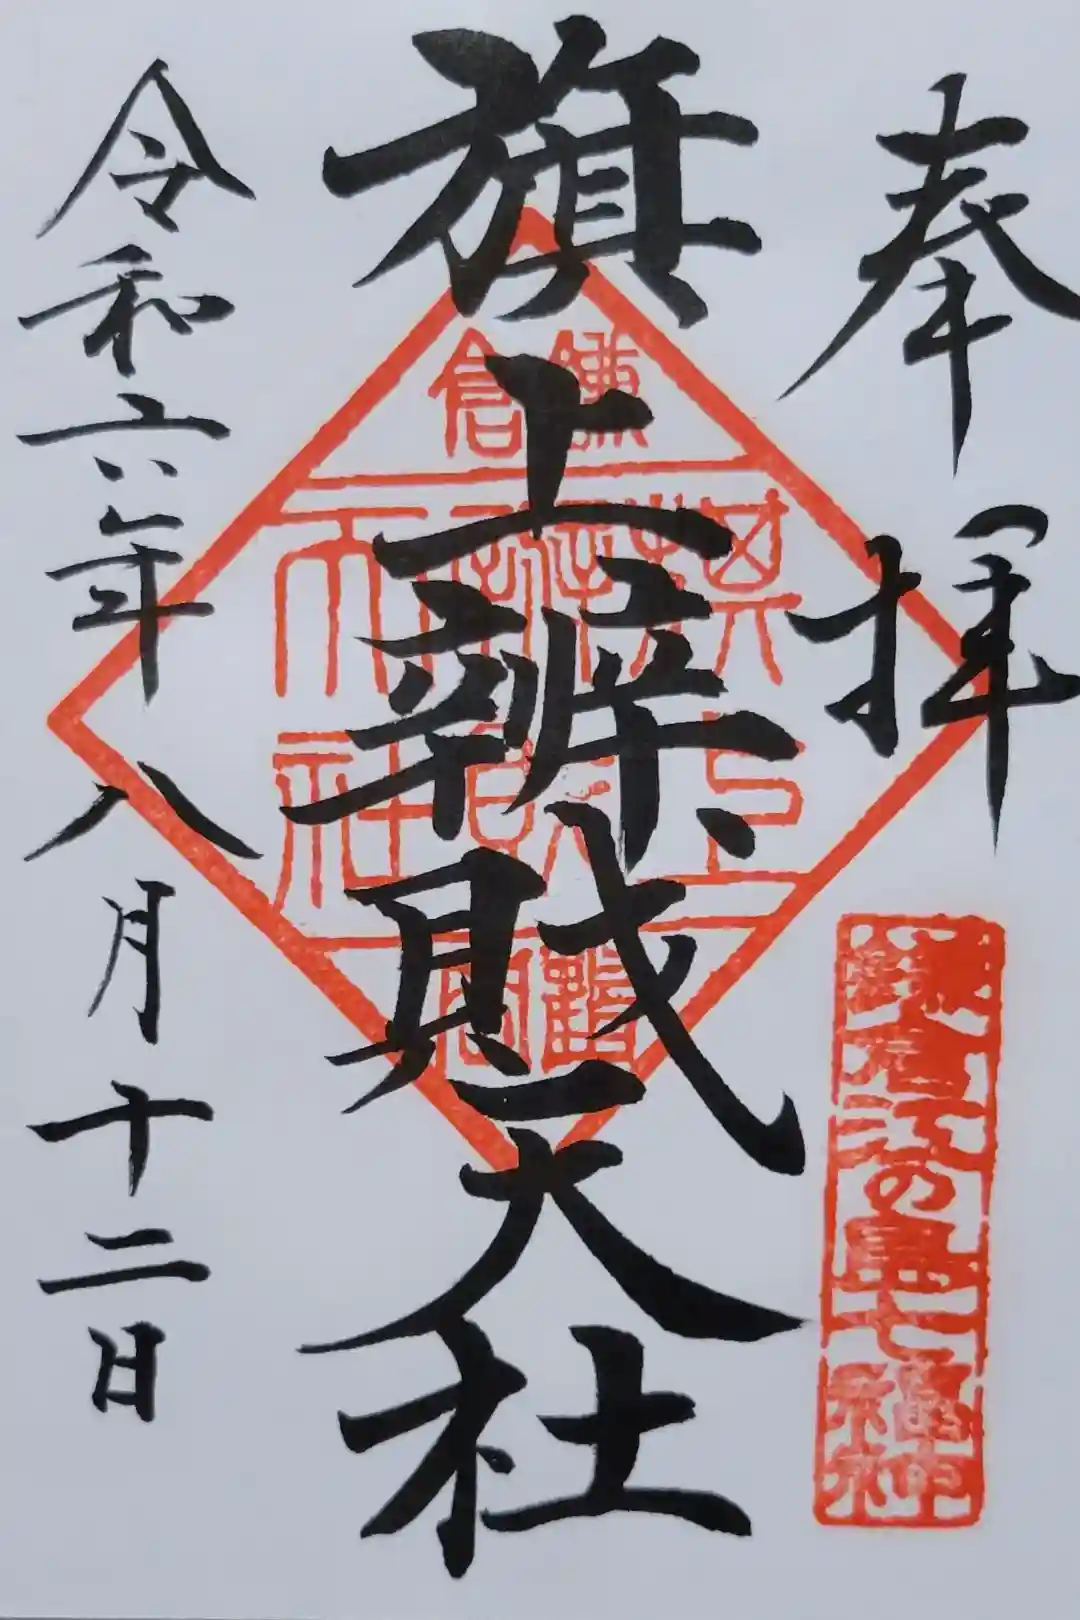 奉拝
鎌倉江の島七福神
旗上辨財天社
鎌倉
旗上弁財天社
鶴岡
令和六年八月十二日